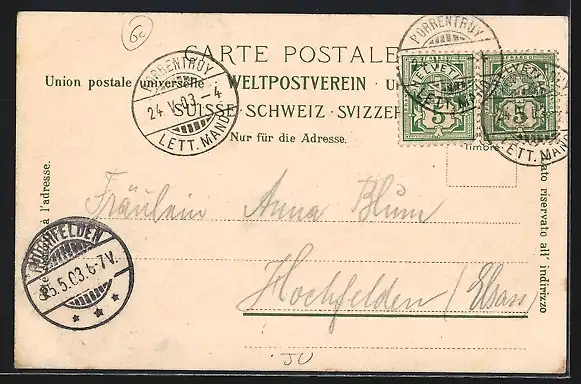 6c
CARTE POSTALE
Union postale universelle · WELTPOSTVEREIN · Un
SUISSE · SCHWEIZ · SVIZZER
Nur für die Adresse.
PORRENTRUY
24 V 03 - 4
LETT. MAND.
PORRENTRUY
LETT. MAND.
LETT. MAND.
HELVETIA
5
5
Timbre
à l'adresse.
ato riservato all' indirizzo
Fräulein Anna Blum
Hochfelden / Elsass
HOCHFELDEN
25.5.03.6-7V.
JU